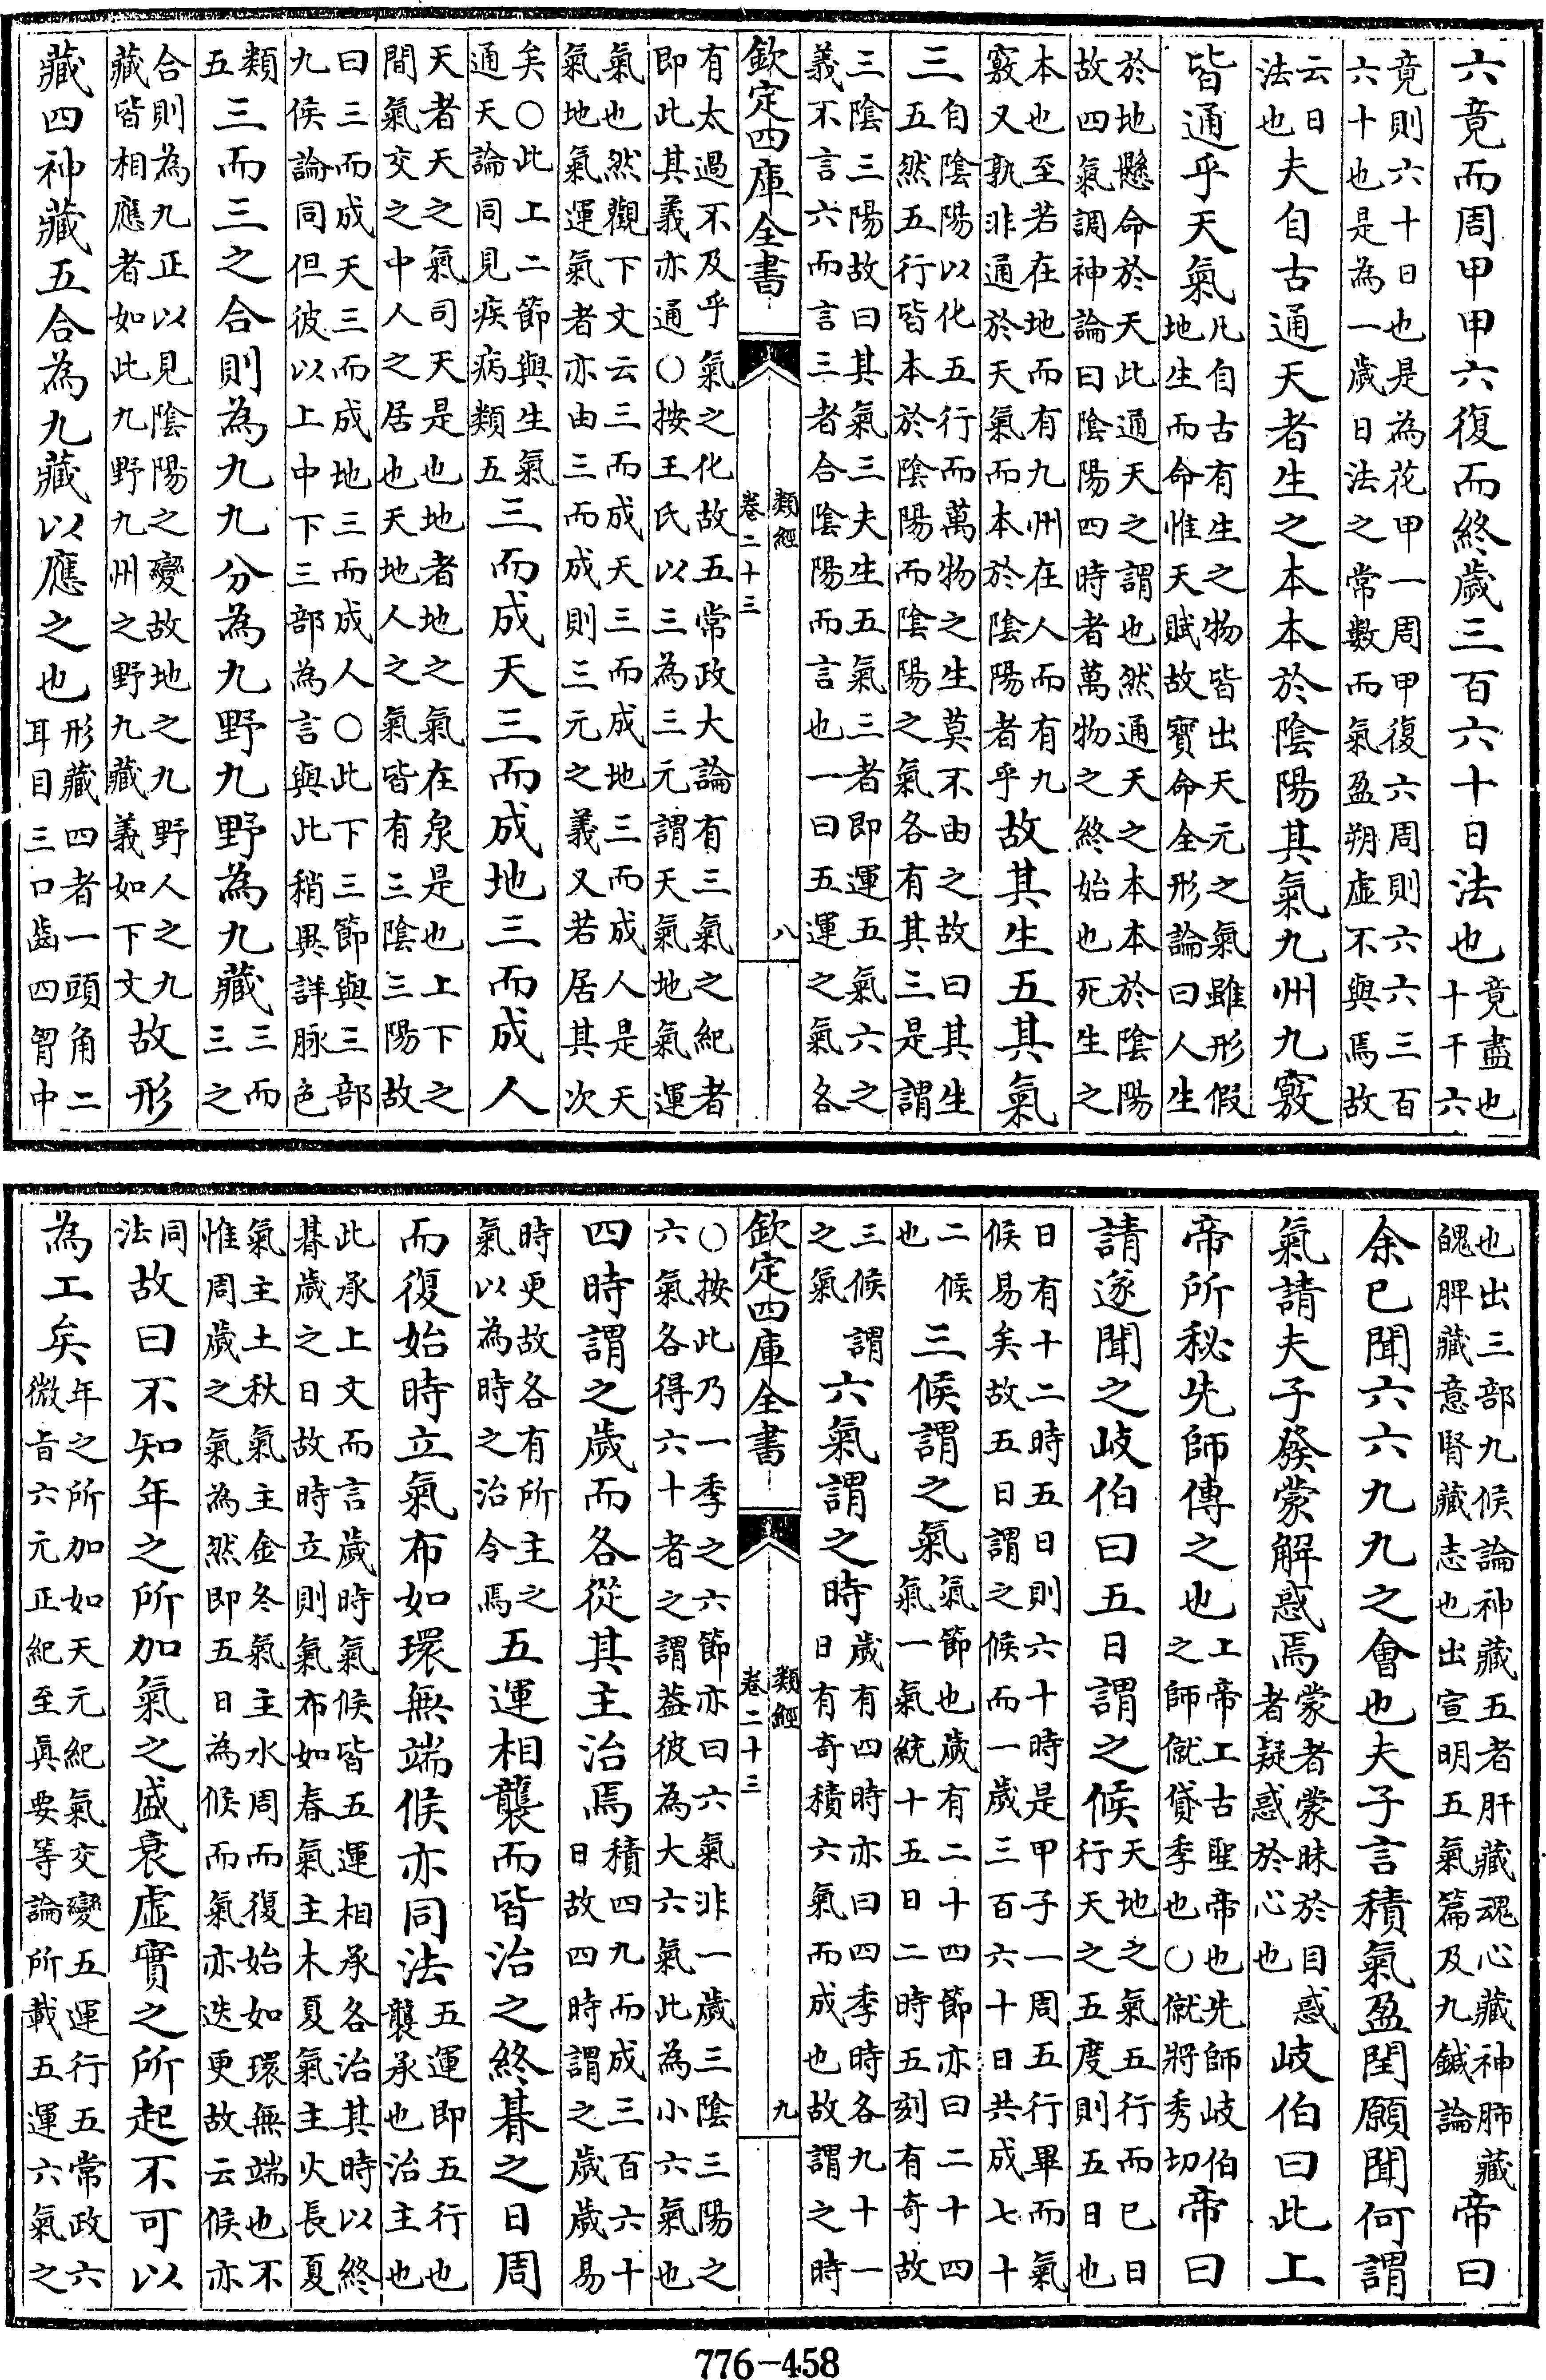 六竟而周甲甲六復而終歲三百六十日法也竟盡也十干六
竟則六十日也是為花甲一周甲復六周則六六三百
六十也是為一歲日法之常數而氣盈朔虛不與焉故
云日法也夫自古通天者生之本本於陰陽其氣九州九竅
皆通乎天氣凡自古有生之物皆出天元之氣雖形假
地生而命惟天賦故寶命全形論曰人生
於地懸命於天此通天之謂也然通天之本本於陰陽
故四氣調神論曰陰陽四時者萬物之終始也死生之
本也至若在地而有九州在人而有九
竅又孰非通於天氣而本於陰陽者乎故其生五其氣
三自陰陽以化五行而萬物之生莫不由之故曰其生
五然五行皆本於陰陽而陰陽之氣各有其三是謂
三陰三陽故曰其氣三夫生五氣三者即運五氣六之
義不言六而言三者合陰陽而言也一曰五運之氣各
欽定四庫全書 類經 卷二十三 八
有太過不及乎氣之化故五常政大論有三氣之紀者
即此其義亦通○按王氏以三為三元謂天氣地氣運
氣也然觀下文云三而成天三而成地三而成人是天
氣地氣運氣者亦由三而成則三元之義又若居其次
矣○此上二節與生氣
通天論同見疾病類五三而成天三而成地三而成人
天者天之氣司天是也地者地之氣在泉是也上下之
間氣交之中人之居也天地人之氣皆有三陰三陽故
曰三而成天三而成地三而成人○此下三節與三部
九候論同但彼以上中下三部為言與此稍異詳脉色
類五三而三之合則為九九分為九野九野為九藏三而三之
合則為九正以見陰陽之變故地之九野人之九
藏皆相應者如此九野九州之野九藏義如下文故形
藏四神藏五合為九藏以應之也形藏四者一頭角二
耳目三口齒四胷中
也出三部九候論神藏五者肝藏魂心藏神肺藏
魄脾藏意腎藏志也出宣明五氣篇及九鍼論帝曰
余已聞六六九九之會也夫子言積氣盈閏願聞何謂
氣請夫子發蒙解惑焉蒙者蒙昧於目惑
者疑惑於心也岐伯曰此上
帝所秘先師傳之也上帝上古聖帝也先師岐伯
之師僦貸季也○僦將秀切帝曰
請遂聞之岐伯曰五日謂之候天地之氣五行而已日
行天之五度則五日也
日有十二時五日則六十時是甲子一周五行畢而氣
候易矣故五日謂之候而一歲三百六十日共成七十
二候也三候謂之氣氣節也歲有二十四節亦曰二十四
氣一氣統十五日二時五刻有奇故
三候謂之氣六氣謂之時歲有四時亦曰四季時各九十一
日有奇積六氣而成也故謂之時
欽定四庫全書 類經 卷二十三 九
○按此乃一季之六節亦曰六氣非一歲三陰三陽之
六氣各得六十者之謂葢彼為大六氣此為小六氣也
四時謂之歲而各從其主治焉積四九而成三百六十
日故四時謂之歲歲易
時更故各有所主之
氣以為時之治令焉五運相襲而皆治之終朞之日周
而復始時立氣布如環無端候亦同法五運即五行也
襲承也治主也
此承上文而言歲時氣候皆五運相承各治其時以終
朞歲之日故時立則氣布如春氣主木夏氣主火長夏
氣主土秋氣主金冬氣主水周而復始如環無端也不
惟周歲之氣為然即五日為候而氣亦迭更故云候亦
同法故曰不知年之所加氣之盛衰虛實之所起不可以
為工矣年之所加如天元紀氣交變五運行五常政六
微旨六元正紀至真要等論所載五運六氣之
776-458